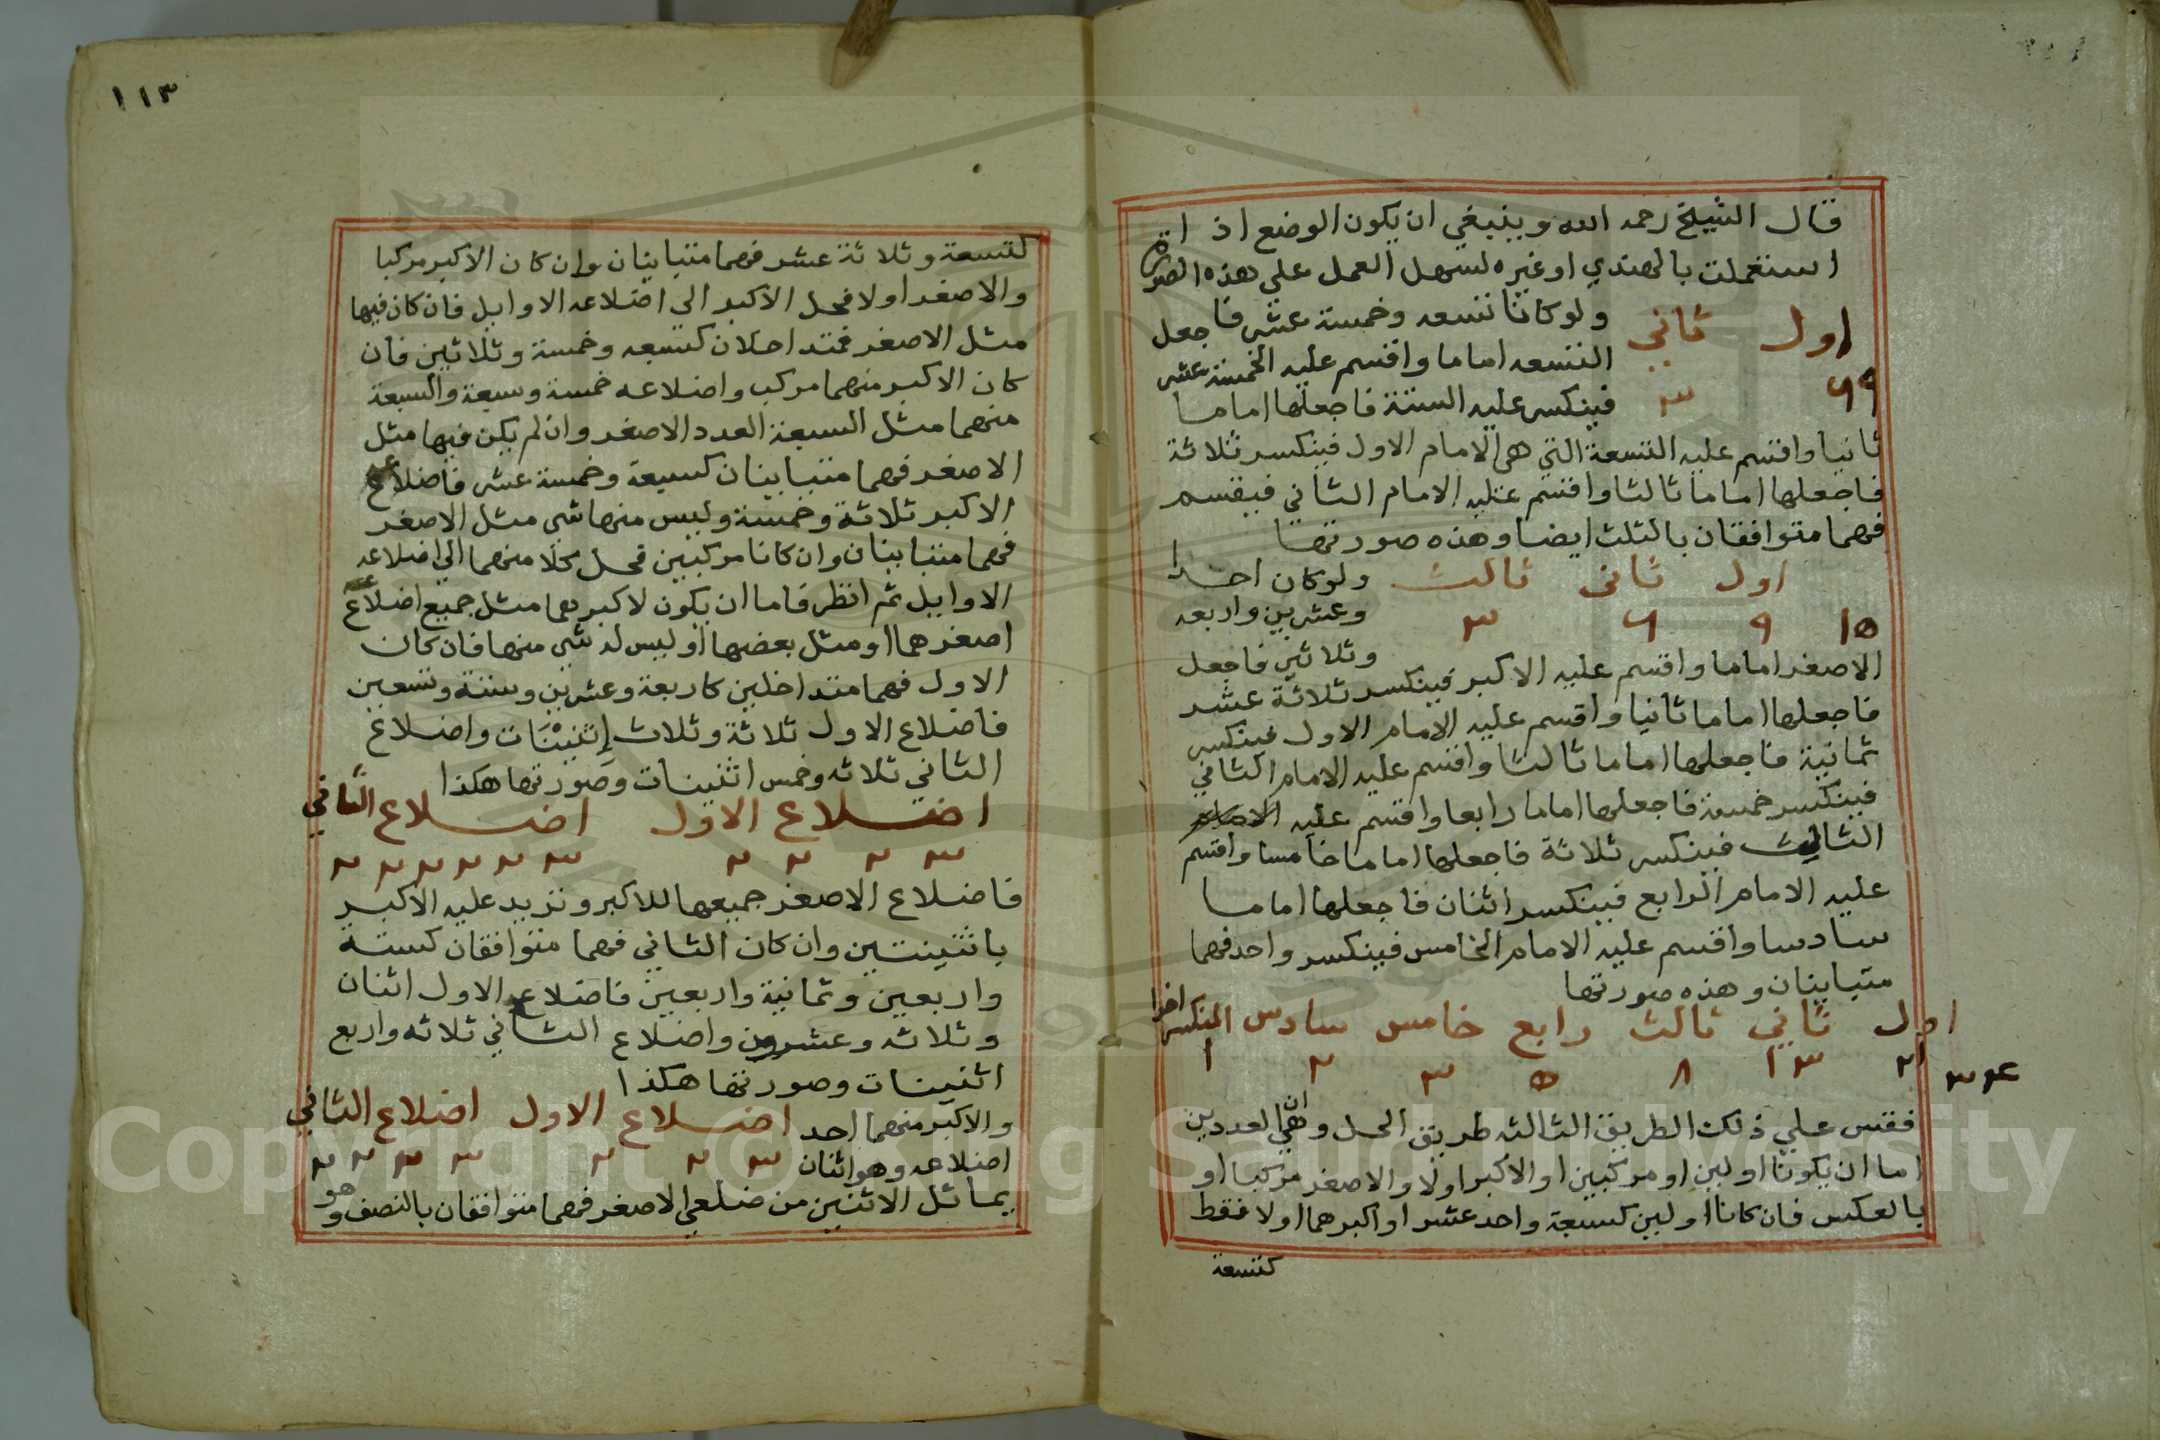 قال الشيخ رحمه الله وينبغي ان يكون الوضع اذ ا
استعملت بالهندي او غيره لسهل العمل علي هذه الصورة
اول ثاني
ولو كانا تسعه وخمسة عشر فاجعل
التسعه اماما واقسم عليه الخمسة عشر
٩ ٦ ٣
فينكسر عليه الستة فاجعلها اماما
ثانيا واقسم عليه التسعة التي هي الامام الاول فينكسر ثلاثة
فاجعلها اماما ثالثا واقسم عليه الامام الثاني فيقسم
فهما متوافقان بالثلث ايضا وهذه صورتها
اول ثاني ثالث
ولو كان احدا
١٥ ٩ ٦ ٣
وعشرين واربعه
وثلاثين فاجعل
الاصغر اماما واقسم عليه الاكبر فينكسر ثلاثة عشر
فاجعلها اماما ثانيا واقسم عليه الامام الاول فينكسر
ثمانية فاجعلها اماما ثالثا واقسم عليه الامام الثاني
فينكسر خمسة فاجعلها اماما رابعا واقسم عليه الامام
الثالث فينكسر ثلاثة فاجعلها اماما خامسا واقسم
عليه الامام الرابع فينكسر اثنان فاجعلها اماما
سادسا واقسم عليه الامام الخامس فينكسر واحد فهما
متباينان وهذه صورتها
اول ثاني ثالث رابع خامس سادس المنكسر اخرا
٣٤ ٢١ ١٣ ٨ ٥ ٣ ٢ ١
فقس علي ذلك الطريق الثالثه طريق الحل وهي ان العددين
اما ان يكونا اولين او مركبين او الاكبر اولا والاصغر مركبا او
بالعكس فان كانا اولين كسبعة واحد عشر او اكبرهما اولا فقط
كتسعة
١١٣
كتسعة وثلاثة عشر فهما متباينان وان كان الاكبر مركبا
والاصغر اولا فحل الاكبر الي اضلاعه الاوايل فان كان فيها
مثل الاصغر فمتداخلان كسبعه وخمسة وثلاثين فان
كان الاكبر منهما مركب واضلاعه خمسة وسبعة والسبعة
منهما مثل السبعة العدد الاصغر وان لم يكن فيها مثل
الاصغر فهما متباينان كسبعة وخمسة عشر فاضلاع
الاكبر ثلاثة وخمسة وليس منها شي مثل الاصغر
فهما متباينان وان كانا مركبين فحل كلا منهما الي اضلاعه
الاوايل ثم انظر فاما ان يكون لاكبرهما مثل جميع اضلاع
اصغرهما او مثل بعضها او ليس له شي منها فان كان
الاول فهما متداخلين كاربعة وعشرين وستة وتسعين
فاضلاع الاول ثلاثة وثلاث إثنينَات واضلاع
الثاني ثلاثه وخمس اثنينات وصورتها هكذا
اضلاع الاول اضلاع الثاني
٣ ٢ ٢ ٢ ٣ ٢ ٢ ٢ ٢ ٢
فاضلاع الاصغر جميعها للاكبر ونزيد عليه الاكبر
باثنينتين وان كان الثاني فهما متوافقان كستة
واربعين وثمانية واربعين فاضلاع الاول اثنان
وثلاثه وعشرون واضلاع الثاني ثلاثه واربع
اثنينات وصورتها هكذا
اضلاع الاول اضلاع الثاني
والاكبر منهما احد
اضلاعه وهو اثنان
٣ ٢ ٢ ٣ ٢ ٢ ٢
يماثل الاثنين من ضلعي الاصغر فهما متوافقان بالنصف وهو
Copyright © King Saud University